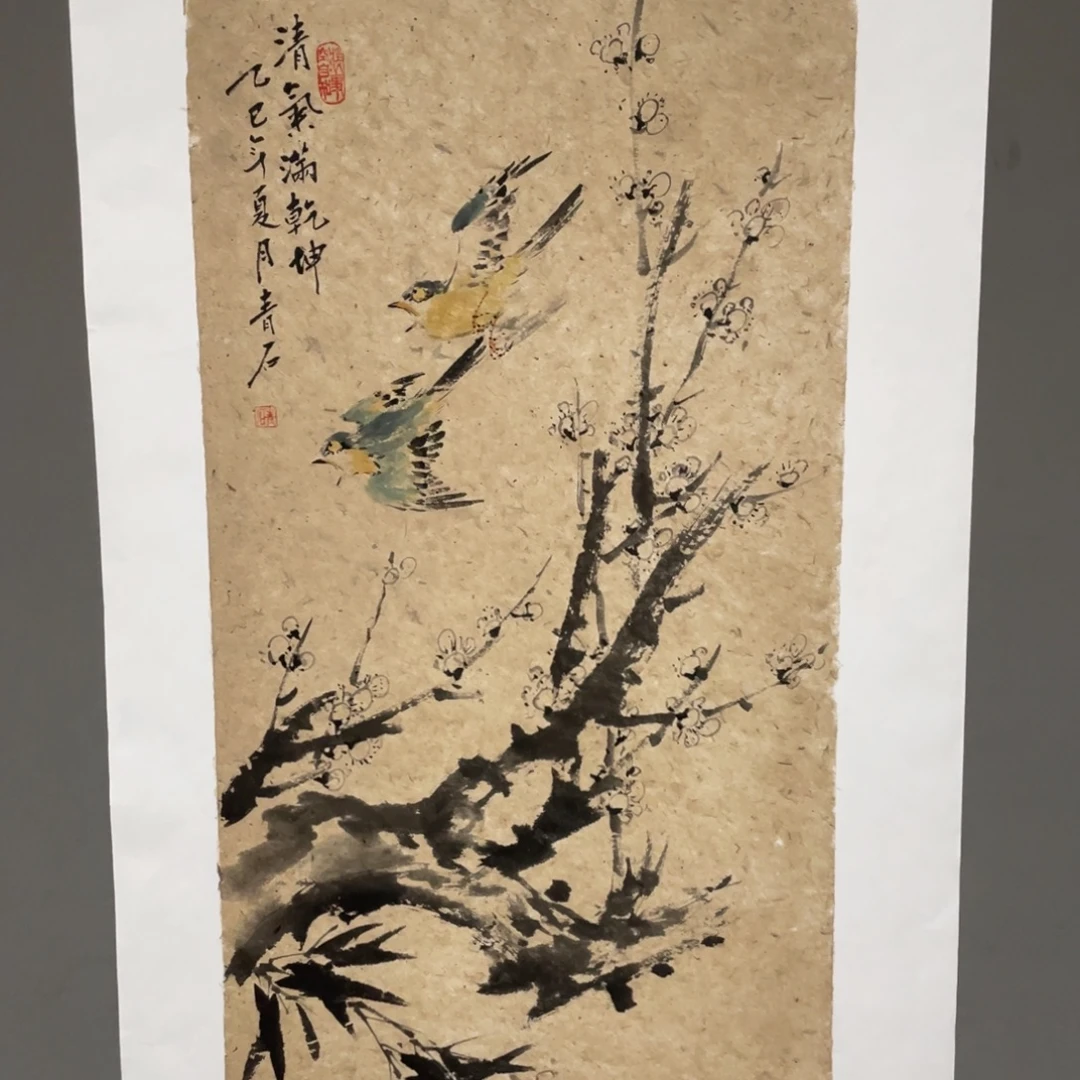 清氣滿乾坤
乙巳年夏月青石